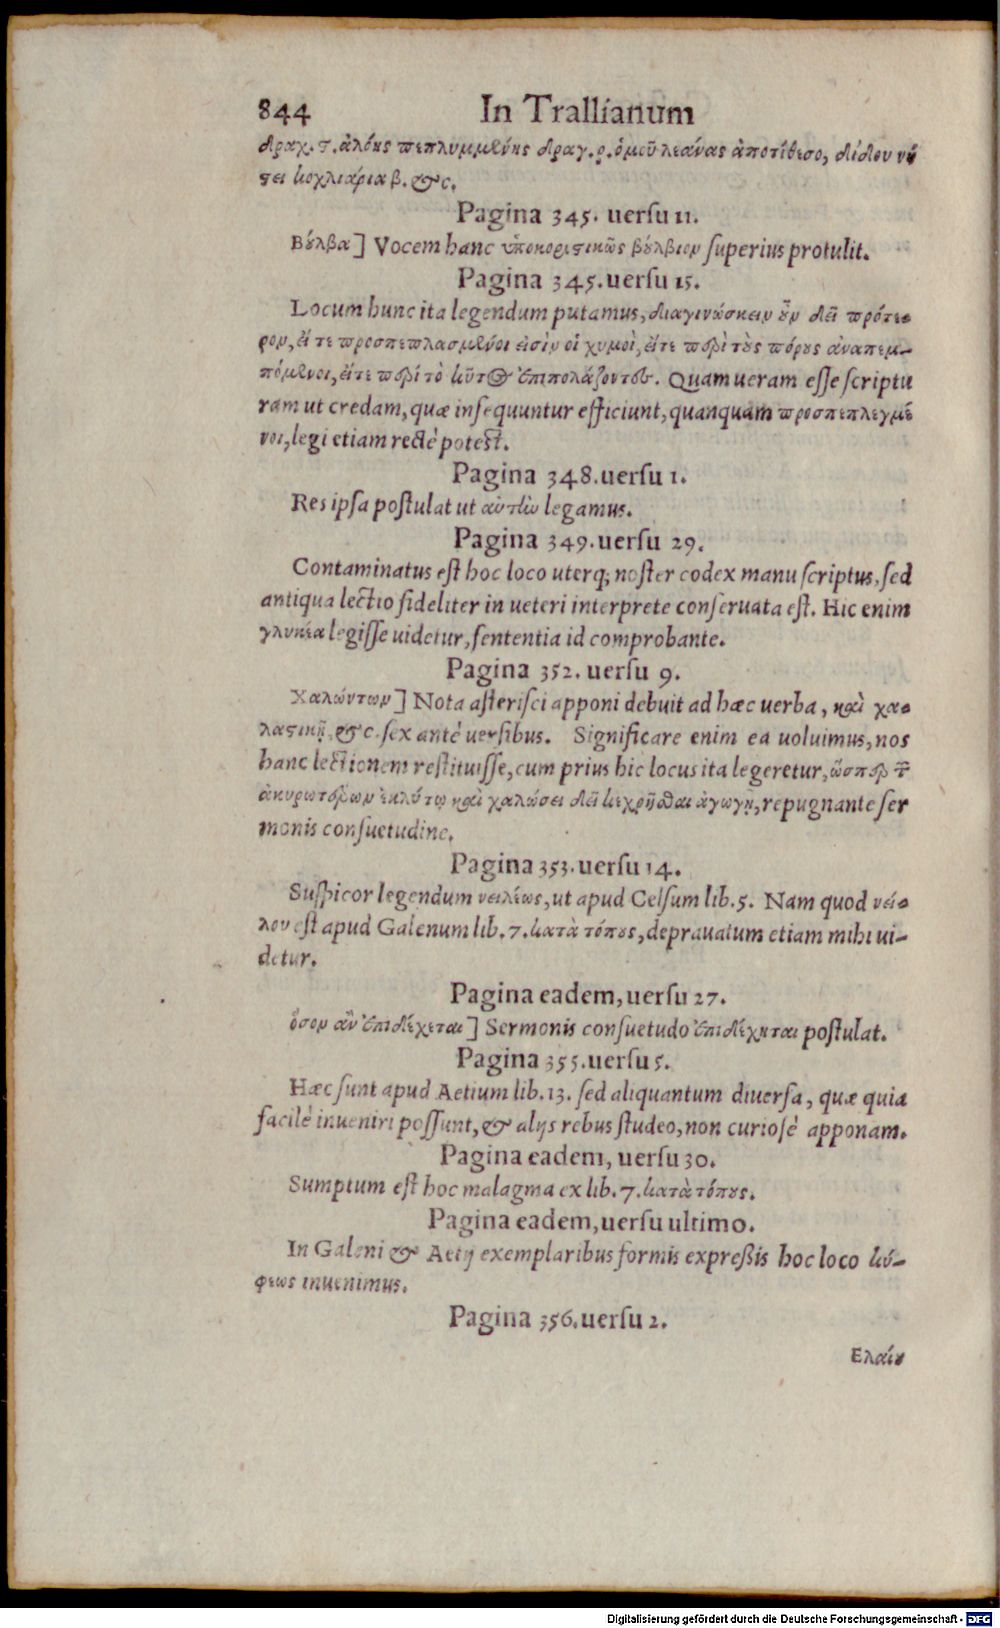 844 In Trallianum
δραχ. ϛ. ἀλόης πεπλυμμένης δραγ. ρ. ὁμοῦ λεάνας ἀποτίθεσο, δίδου νή
στει κοχλιάρια β. &c.
Pagina 345. uersu 11.
Βύλβα] Vocem hanc ὑποκοριστικῶς βύλβιον superius protulit.
Pagina 345. uersu 15.
Locum hunc ita legendum putamus, διαγινώσκειν οὖν δεῖ πρότε-
ρον, εἴ τε προσπεπλασμένοι εἰσὶν οἱ χυμοὶ, εἴτε περὶ τοὺς πόρους ἀναπεμ-
πόμενοι, εἴτε περὶ τὸ κύτος ἐπιπολάζοντες. Quam ueram esse scriptu
ram ut credam, quæ insequuntur efficiunt, quanquam προσπεπλεγμέ
νοι, legi etiam rectè potest.
Pagina 348. uersu 1.
Res ipsa postulat ut αὐτὴν legamus.
Pagina 349. uersu 29.
Contaminatus est hoc loco uterq; noster codex manu scriptus, sed
antiqua lectio fideliter in ueteri interprete conseruata est. Hic enim
γλυκέα legisse uidetur, sententia id comprobante.
Pagina 352. uersu 9.
Χαλώντων] Nota asterisci apponi debuit ad hæc uerba, καὶ χα-
λαστικῇ, &c. sex antè uersibus. Significare enim ea uoluimus, nos
hanc lectionem restituisse, cum prius hic locus ita legeretur, ὥσπερ τ
ἀκυρωτέρων ἐκλύτῳ καὶ χαλώσει δεῖ κεχρῆσθαι ἀγωγῇ, repugnante ser
monis consuetudine.
Pagina 353. uersu 14.
Suspicor legendum νειλέως, ut apud Celsum lib. 5. Nam quod νεί-
λου est apud Galenum lib. 7. κατὰ τόπους, deprauatum etiam mihi ui-
detur.
Pagina eadem, uersu 27.
ὅσον ἂν ἐπιδέχεται] Sermonis consuetudo ἐπιδέχηται postulat.
Pagina 355. uersu 5.
Hæc sunt apud Aetium lib. 13. sed aliquantum diuersa, quæ quia
facilè inueniri possunt, & alijs rebus studeo, non curiosè apponam.
Pagina eadem, uersu 30.
Sumptum est hoc malagma ex lib. 7. κατὰ τόπους.
Pagina eadem, uersu ultimo.
In Galeni & Aetij exemplaribus formis expreßis hoc loco κύ-
φεως inuenimus.
Pagina 356. uersu 2.
Ελαίου
Digitalisierung gefördert durch die Deutsche Forschungsgemeinschaft - DFG